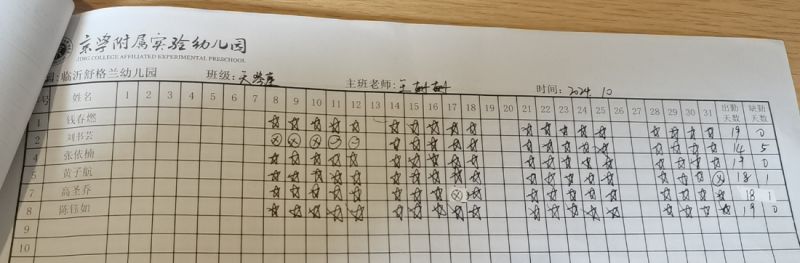 京学附属实验幼儿园
JING COLLEGE AFFILIATED EXPERIMENTAL PRESCHOOL
园:临沂舒格兰幼儿园 班级: 主班老师: 时间: 2024.10
号 姓名 1 2 3 4 5 6 7 8 9 10 11 12 13 14 15 16 17 18 19 20 21 22 23 24 25 26 27 28 29 30 31 出勤天数 缺勤天数
1 钱春燃 19 0
2 刘书芸 14 5
4 张依楠 19 0
5 黄子航 18 1
7 高圣乔 18 1
8 陈钰如 19 0
9
10